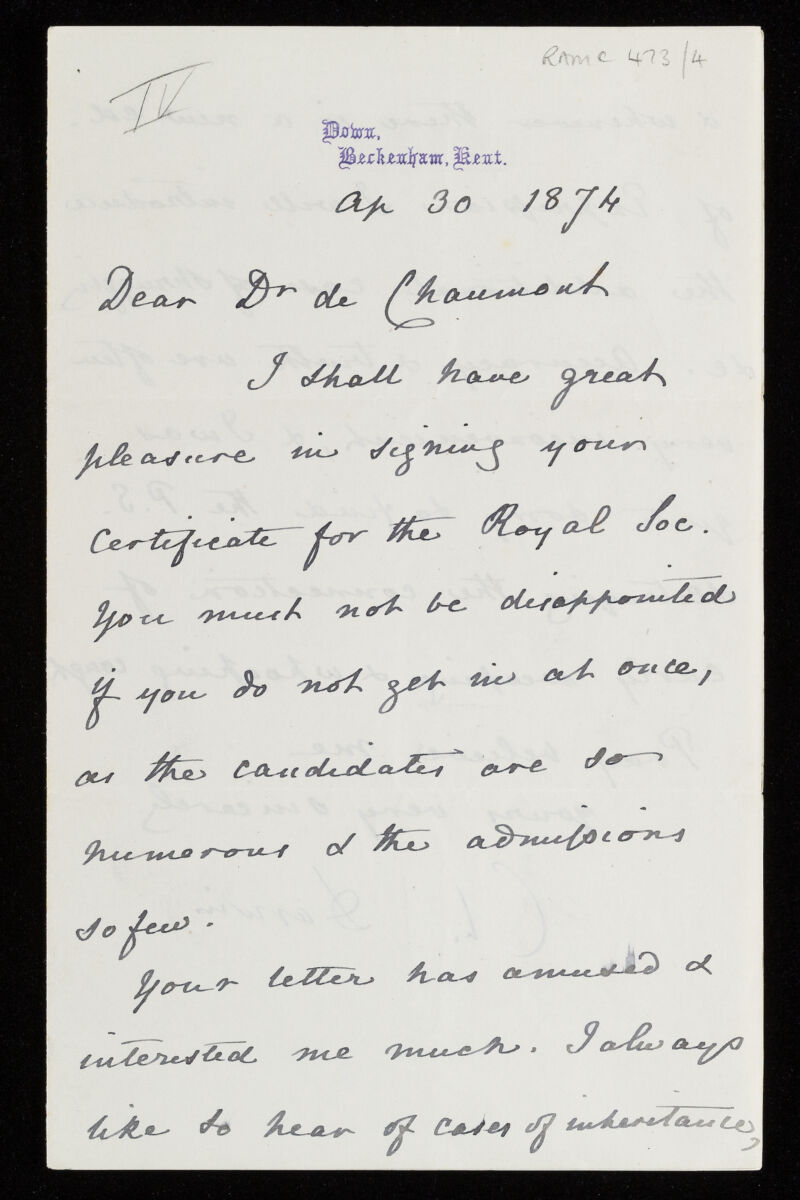 RAMC 473/4
IV
Down,
Beckenham, Kent.
Ap 30 1874
Dear Dr de Chaumont
I shall have great
pleasure in signing your
certificate for the Royal Soc.
You must not be disappointed
if you do not get in at once,
as the candidates are so
numerous & the admissions
so few.
Your letter has amused &
interested me much. I always
like to hear of cases of inheritance,